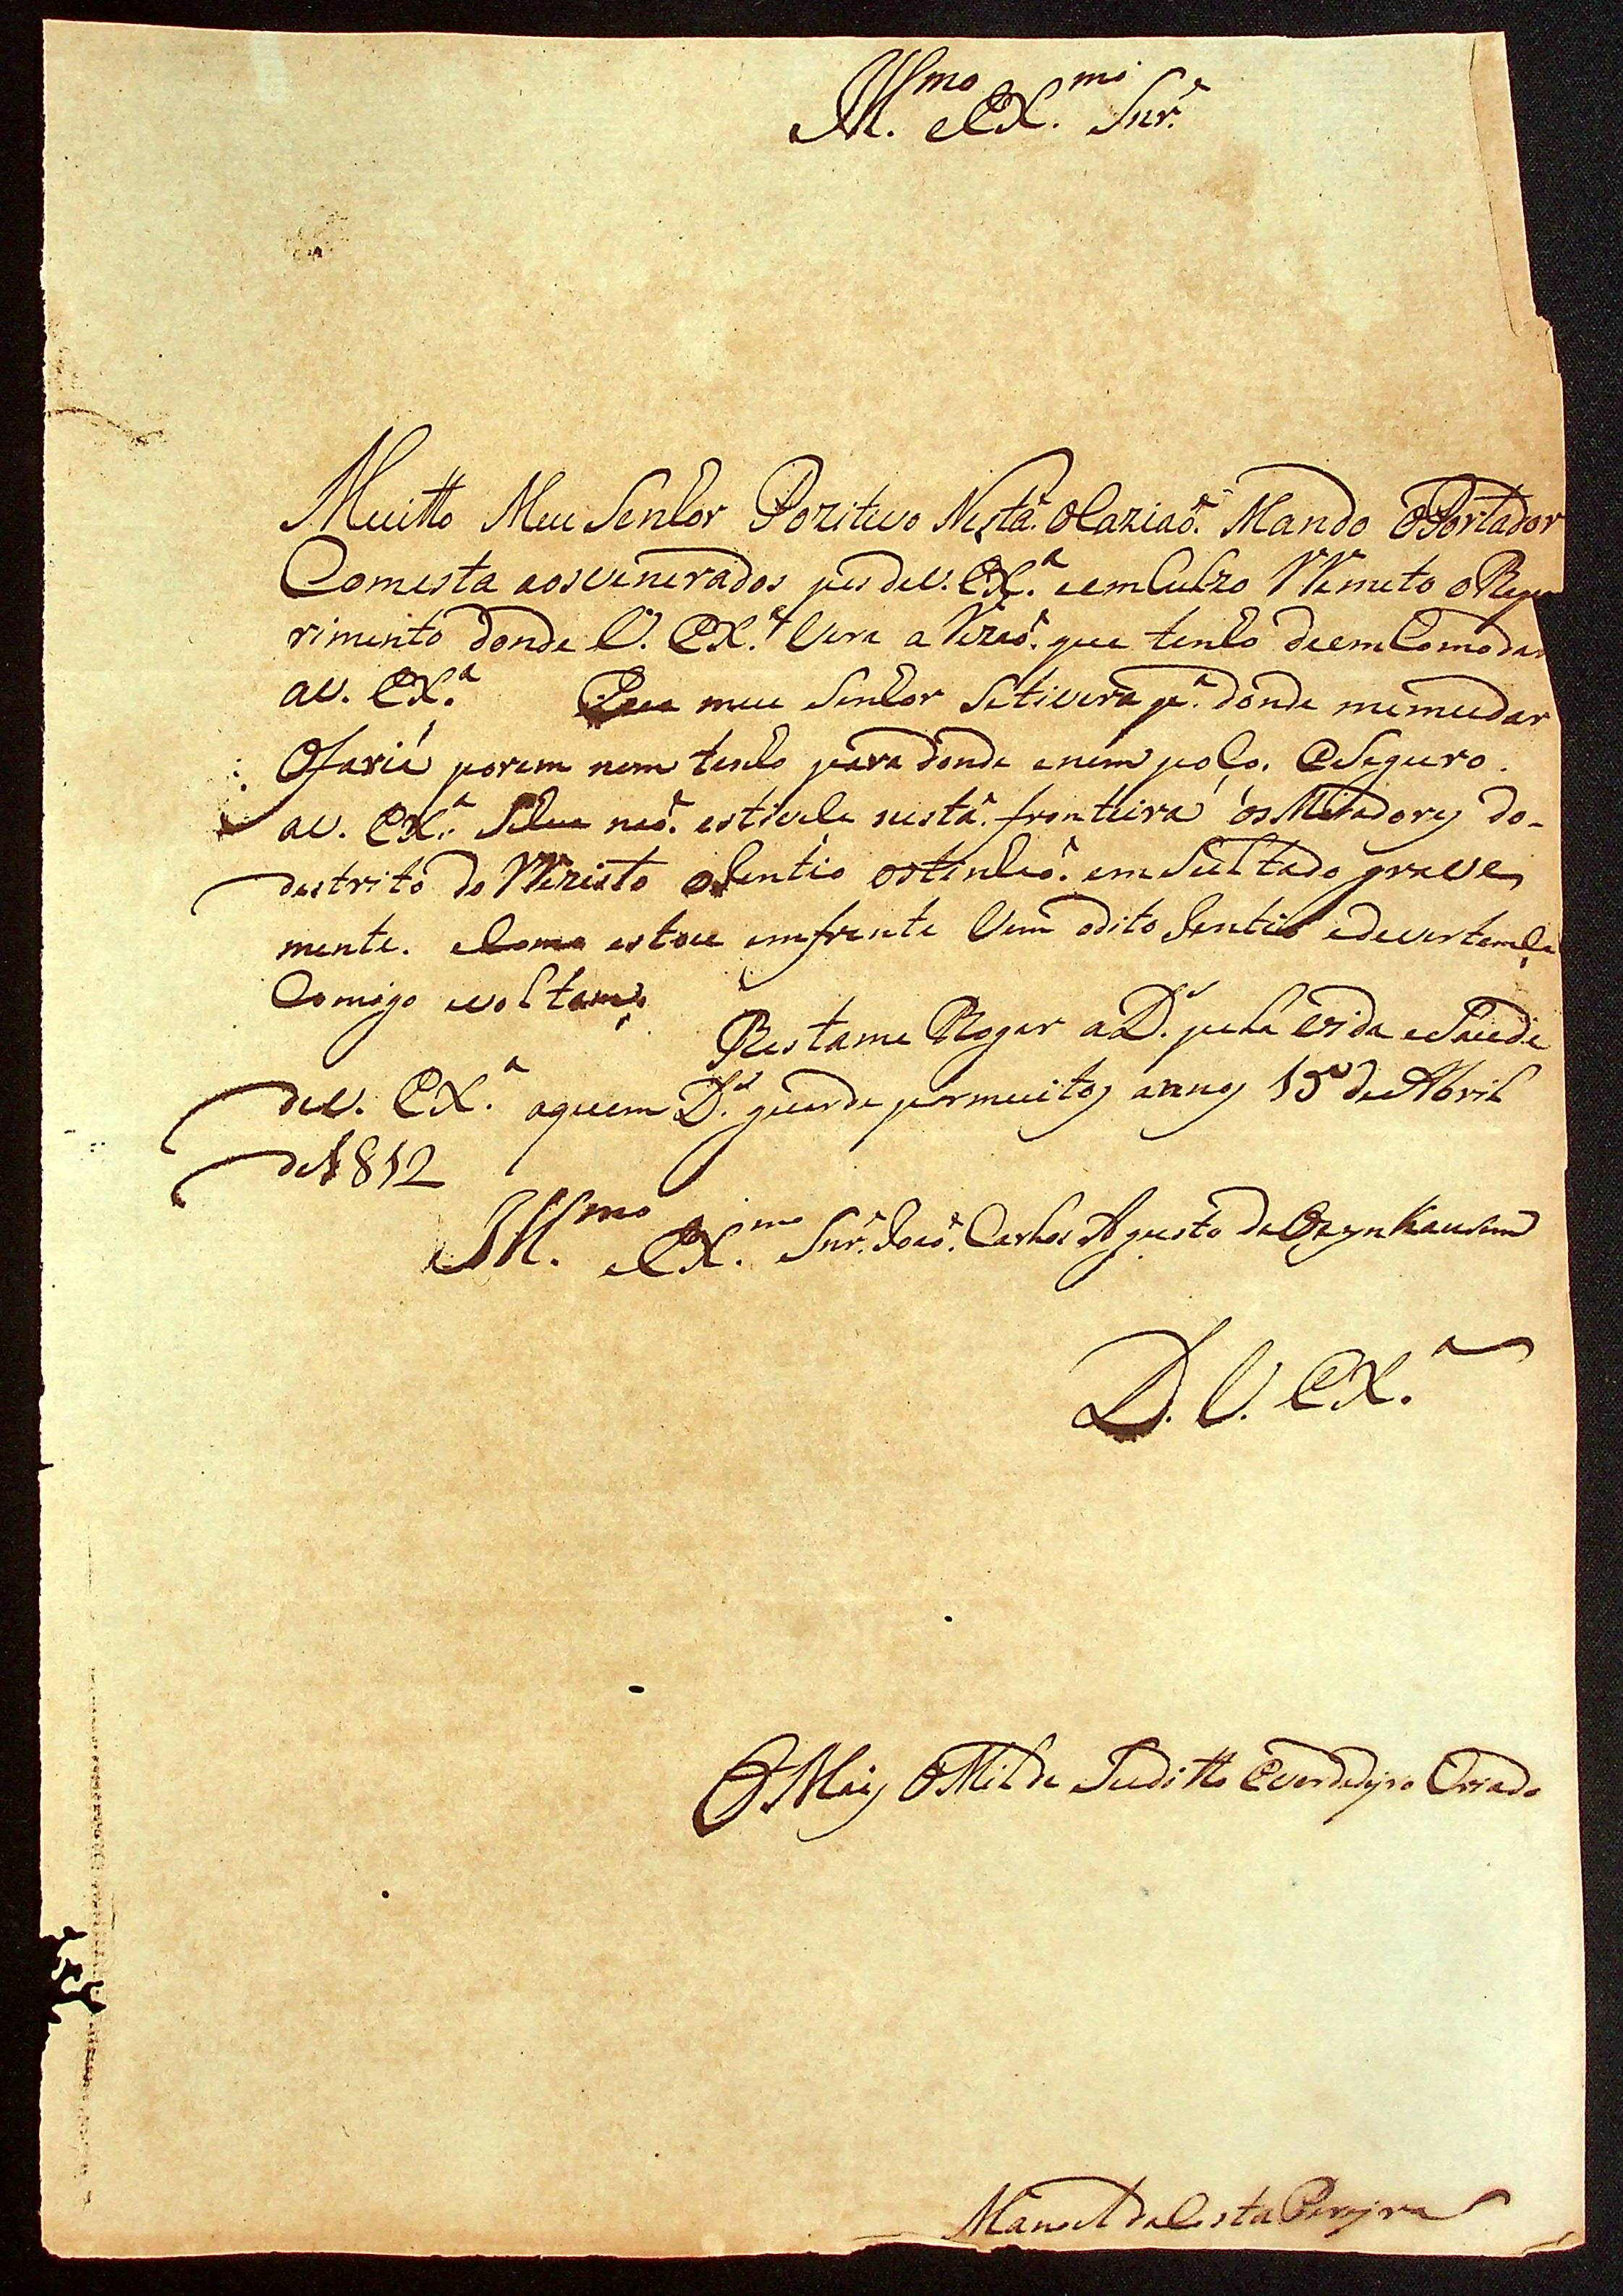 Ill.mo eEX.mo Snr.
Muitto Meu Senhor Pozitivo Nesta. Ocaziaõ. Mando OPortador
Comesta aosvenerados pes deV. EX.a eemCulzo RRemeto o Reque
rimento donde V. EX.a Vera a Rezaõ. que tenho deemComodar
aV. EX.a meu Senhor Setivera p.a donde memudar
Ofaria porem nem tenho para donde enem poço. ESeguro.
aV. EX.a Seeu naõ. estivece nesta. fronteira os Miradores do-
destrito do RRezisto oGentio ostinhaõ. emSultado grave
mente. eComo estou emfrente Vem odito Gentio edevertemçe
Comigo evoltamçe
Restame Rogar aD.s pella vida eSaude
deV. EX.a aquem D.s guarde pormuitos annos 15 deAbril
de1812
Ill.mo eEX.mo Snr. Joaõ. Carlos Agusto de Oeynhausem
D. V. EX.a
OMais OMilde Suditto Everdadejro Criado
Manoel daCosta Perejra